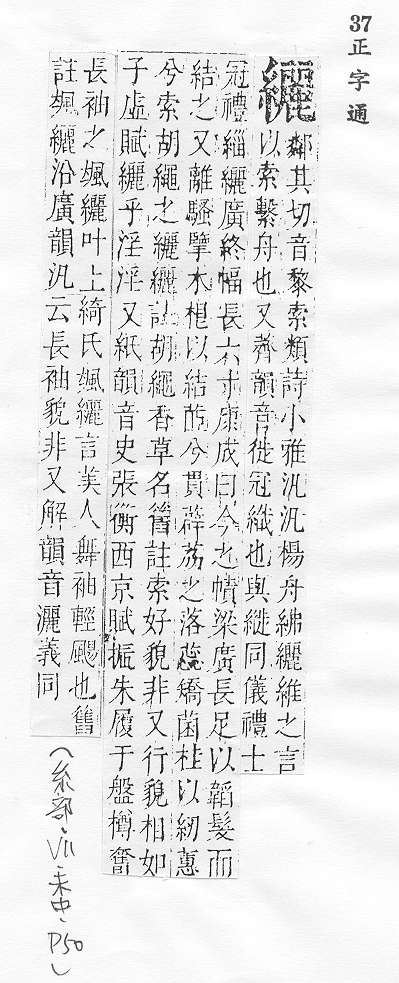 37正字通
纚
鄰其切音黎索類詩小雅汎汎楊舟紼纚維之言
以索繫舟也又薺韻音徙冠織也與縰同儀禮士
冠禮緇纚廣終幅長六寸康成曰今之幘梁廣長足以韜髮而
結之又離騷擥木根以結茝兮貫薜荔之落蕊矯菌桂以紉蕙
兮索胡繩之纚纚註胡繩香草名舊註索好貌非又行貌相如
子虛賦纚乎淫淫又紙韻音史張衡西京賦振朱履于盤樽奮
長袖之颯纚叶上綺氏颯纚言美人舞袖輕颺也舊
註颯纚沿廣韻汎云長袖貌非又解韻音灑義同
(糸部、VII、未中、P50)